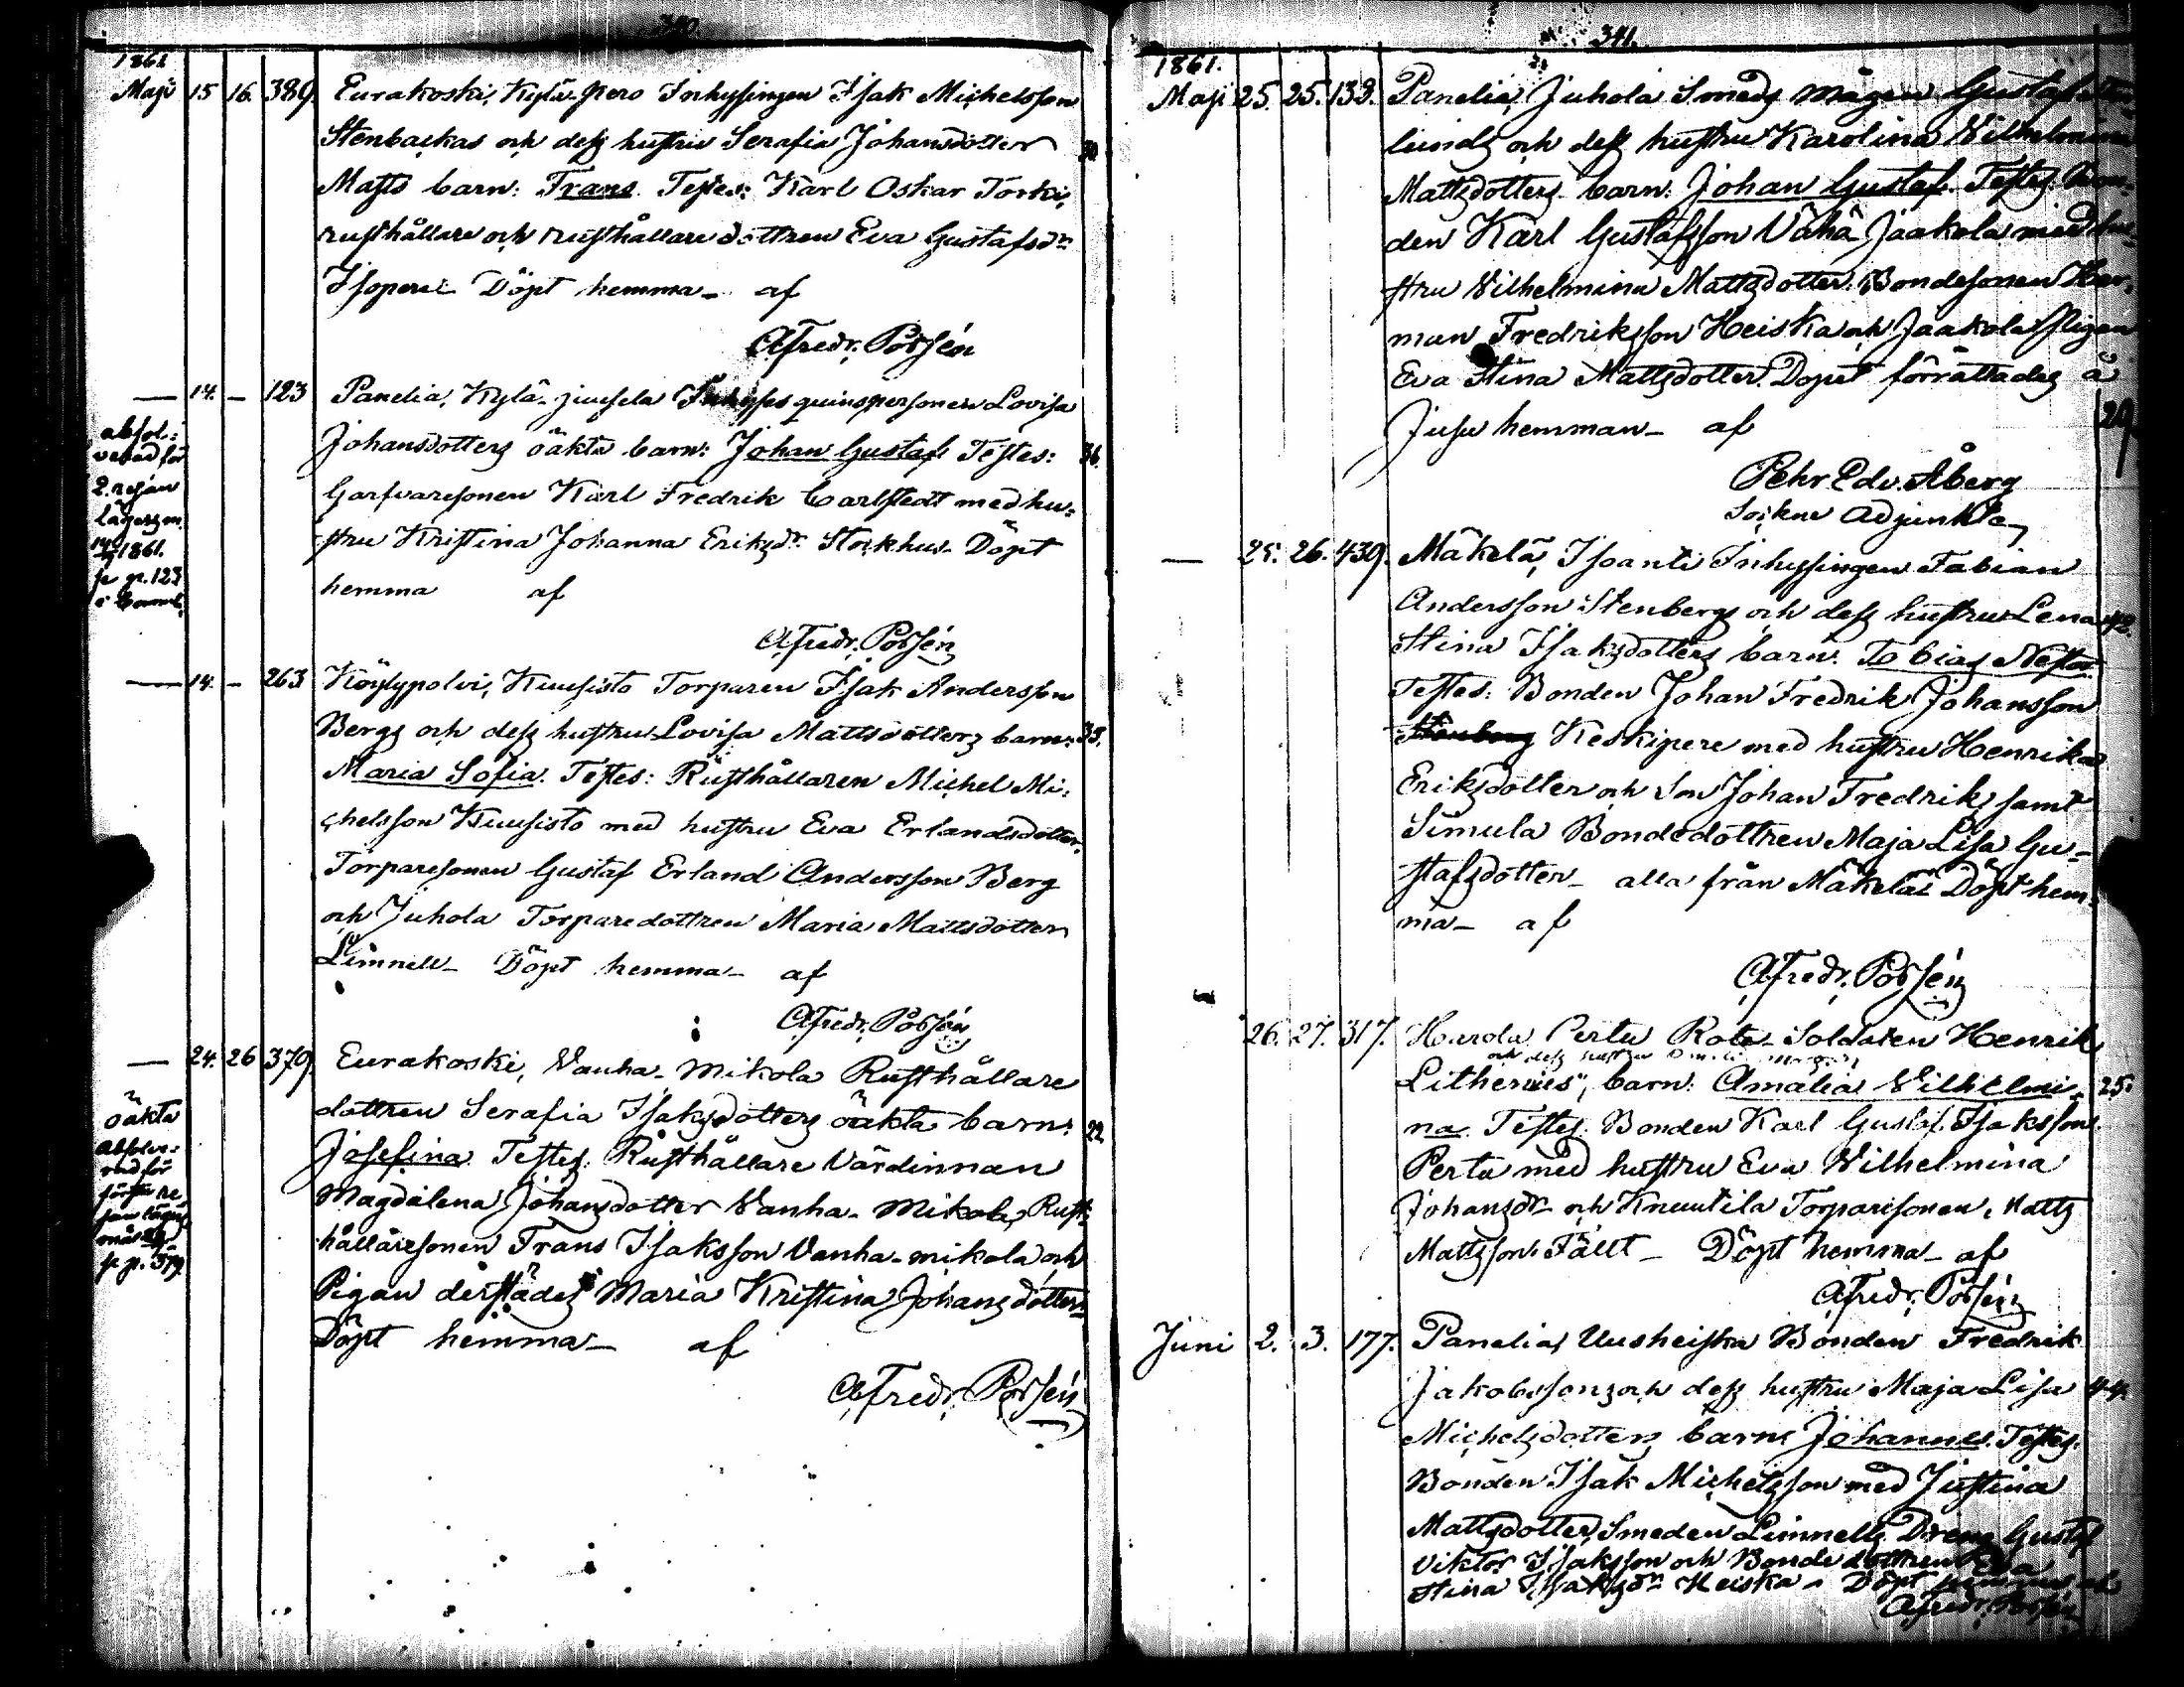 340.
1861
Maji 15 16. 389. Eurakoski, Kylä-Pero Inhysingen Isak Michelsson
Stenbackas och dess hustru Serafia Johansdotter
Matts barn: Frans. Testes: Karl Oskar Torki,
rusthållare och rusthållare dottren Eva Gustafsdr
Isoperi Döpt hemma - af
AFredr. Possén
— 14. — 123 Panelia, Kylä-jiusela qvinspersonen Lovisa
Johansdotters oäkta barn: Johan Gustaf. Testes: 36.
Garfvaresonen Karl Fredrik Carlstedt med hu-
stru Kristina Johanna Eriksdr Stockhus. Döpt
hemma af
AFredr. Possén
absol-
verad för
2. resan
lägersm.
1861.
se p. 123
— 14. — 263 Köylypolvi, Kuusisto Torparen Isak Andersson
Bergs och dess hustru Lovisa Mattsdotters barn: 38.
Maria Sofia. Testes: Rusthållaren Michel Mi-
chelsson Kuusisto med hustru Eva Erlandsdotter,
Torparesonen Gustaf Erland Andersson Berg
och Juhola Torparedottren Maria Mattsdotter
Limnell - Döpt hemma - af
AFredr. Possén
— 24. 26 379. Eurakoski, Vanha-Mikola Rusthållare
dottren Serafia Isaksdotters oäkta barn: 22
Josefina. Testes: Rusthållare Värdinnan
Magdalena Johansdotter Vanha-Mikola, Rust-
hållaresonen Frans Isaksson Vanha-mikola och
Pigan derstädes Maria Kristina Johansdotter
Döpt hemma - af
AFredr. Possén
oäkta
Absolve-
rad för
första re-
san
se p. 379
341.
1861.
Maji 25. 25. 133. Panelia, Juhola Smeds mågen Gustaf
lunds och dess hustru Karolina Vilhelmina
Mattsdotters barn: Johan Gustaf. Testes: Bon-
den Karl Gustafsson Vähä-Jaakola med hu-
stru Vilhelmina Mattsdotter. Bondesonen Her-
man Fredriksson Heiska och Jaakola Pigan
Eva Stina Mattsdotter. Dopet förrättades å
Jusu hemman - af 29.
Pehr Edv. Åberg
Sockne Adjunkt
— 25. 26. 439. Mäkelä, Isoanti Inhysingen Fabian
Andersson Stenbergs och dess hustru Lena 42.
Stina Isaksdotters barn: Tobias Nestor
Testes: Bonden Johan Fredrik Johansson
Stenberg Keskipere med hustru Henrika
Eriksdotter och Son Johan Fredrik, samt
Simula Bondedottren Maja Lisa Gu-
stafsdotter - alla från Mäkelä Döpt hem-
ma - af
AFredr. Possén
26. 27. 317. Harola Pertu Rote-Soldaten Henrik
och dess hustru
Litherius, barn: Amalia Vilhelmi- 25.
na. Testes: Bonden Karl Gustaf Isaksson
Pertu med hustru Eva Vilhelmina
Johansdr och Knuutila Torparesonen, Matts
Mattsson Fällt - Döpt hemma - af
AFredr. Possén
Juni 2. 3. 177. Panelia, Uusheiska Bonden Fredrik
Jakobssons och dess hustru Maja Lisa 44.
Michelsdotters barn: Johannes. Testes:
Bonden Isak Michelsson med Justina
Mattsdotter, Smeden Limnells Dreng Gustaf
Viktor Isaksson och Bonde dottren Eva
Stina Isaksdr Heiska - Döpt hemma af
AFredr. Possén